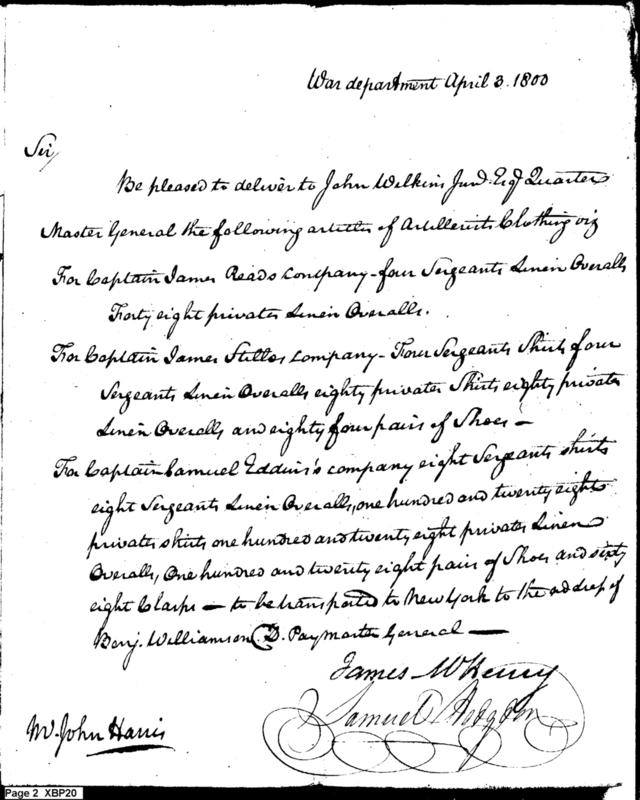 War department April 3. 1800
Sir,
Be pleased to deliver to John Wilkins Jund. Esqr Quarter
Master General the following articles of Artillerists Clothing viz
For Captain James Reads company - four Sergeants Linen Overalls
Forty eight privates Linen Overalls.
For Captain James Stilles company - Four Sergeants Shirts four
Sergeants Linen Overalls eighty privates Shirts eighty privates
Linen Overalls and eighty four pairs of Shoes -
For Captain Samuel Eddins's company eight Sergeants shirts
eight Sergeants Linen Overalls, one hundred and twenty eight
privates shirts one hundred and twenty eight privates Linen
Overalls, One hundred and twenty eight pairs of Shoes and sixty
eight Clasps - to be transported to New York to the address of
Benj. Williamson D. Paymaster General -
James McHenry
Samuel Hodgdon
Mr. John Harris
Page 2 XBP20